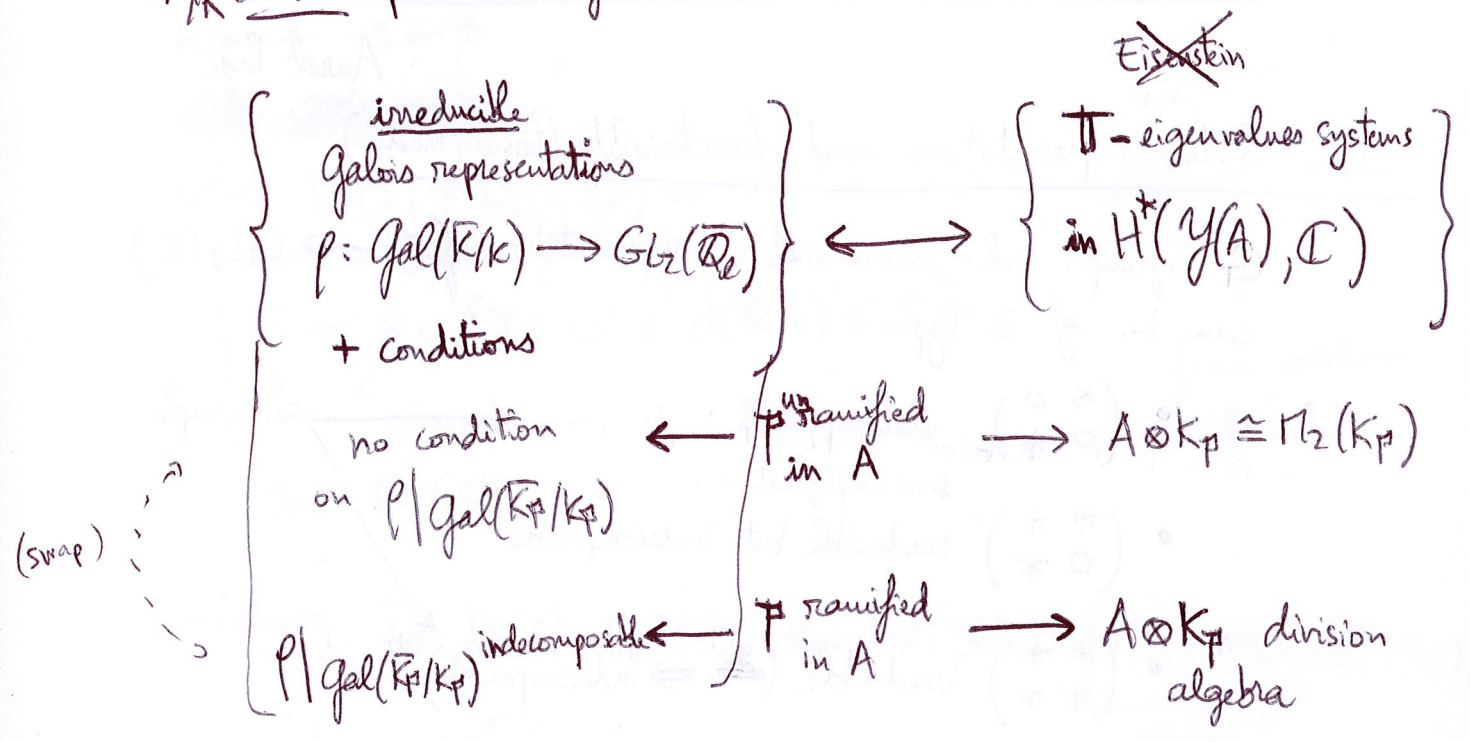 Eisenstein
irreducible
Galois representations
ρ: Gal(K̄/K) → GL₂(Q̄ₗ)
+ conditions
↔
𝕋-eigenvalues systems
in H*(Y(A), ℂ)
no condition
on ρ|Gal(K̄𝔭/K𝔭)
← 𝔭 unramified
in A
→ A⊗K𝔭 ≅ M₂(K𝔭)
(swap)
ρ|Gal(K̄𝔭/K𝔭) indecomposable
← 𝔭 ramified
in A
→ A⊗K𝔭 division
algebra